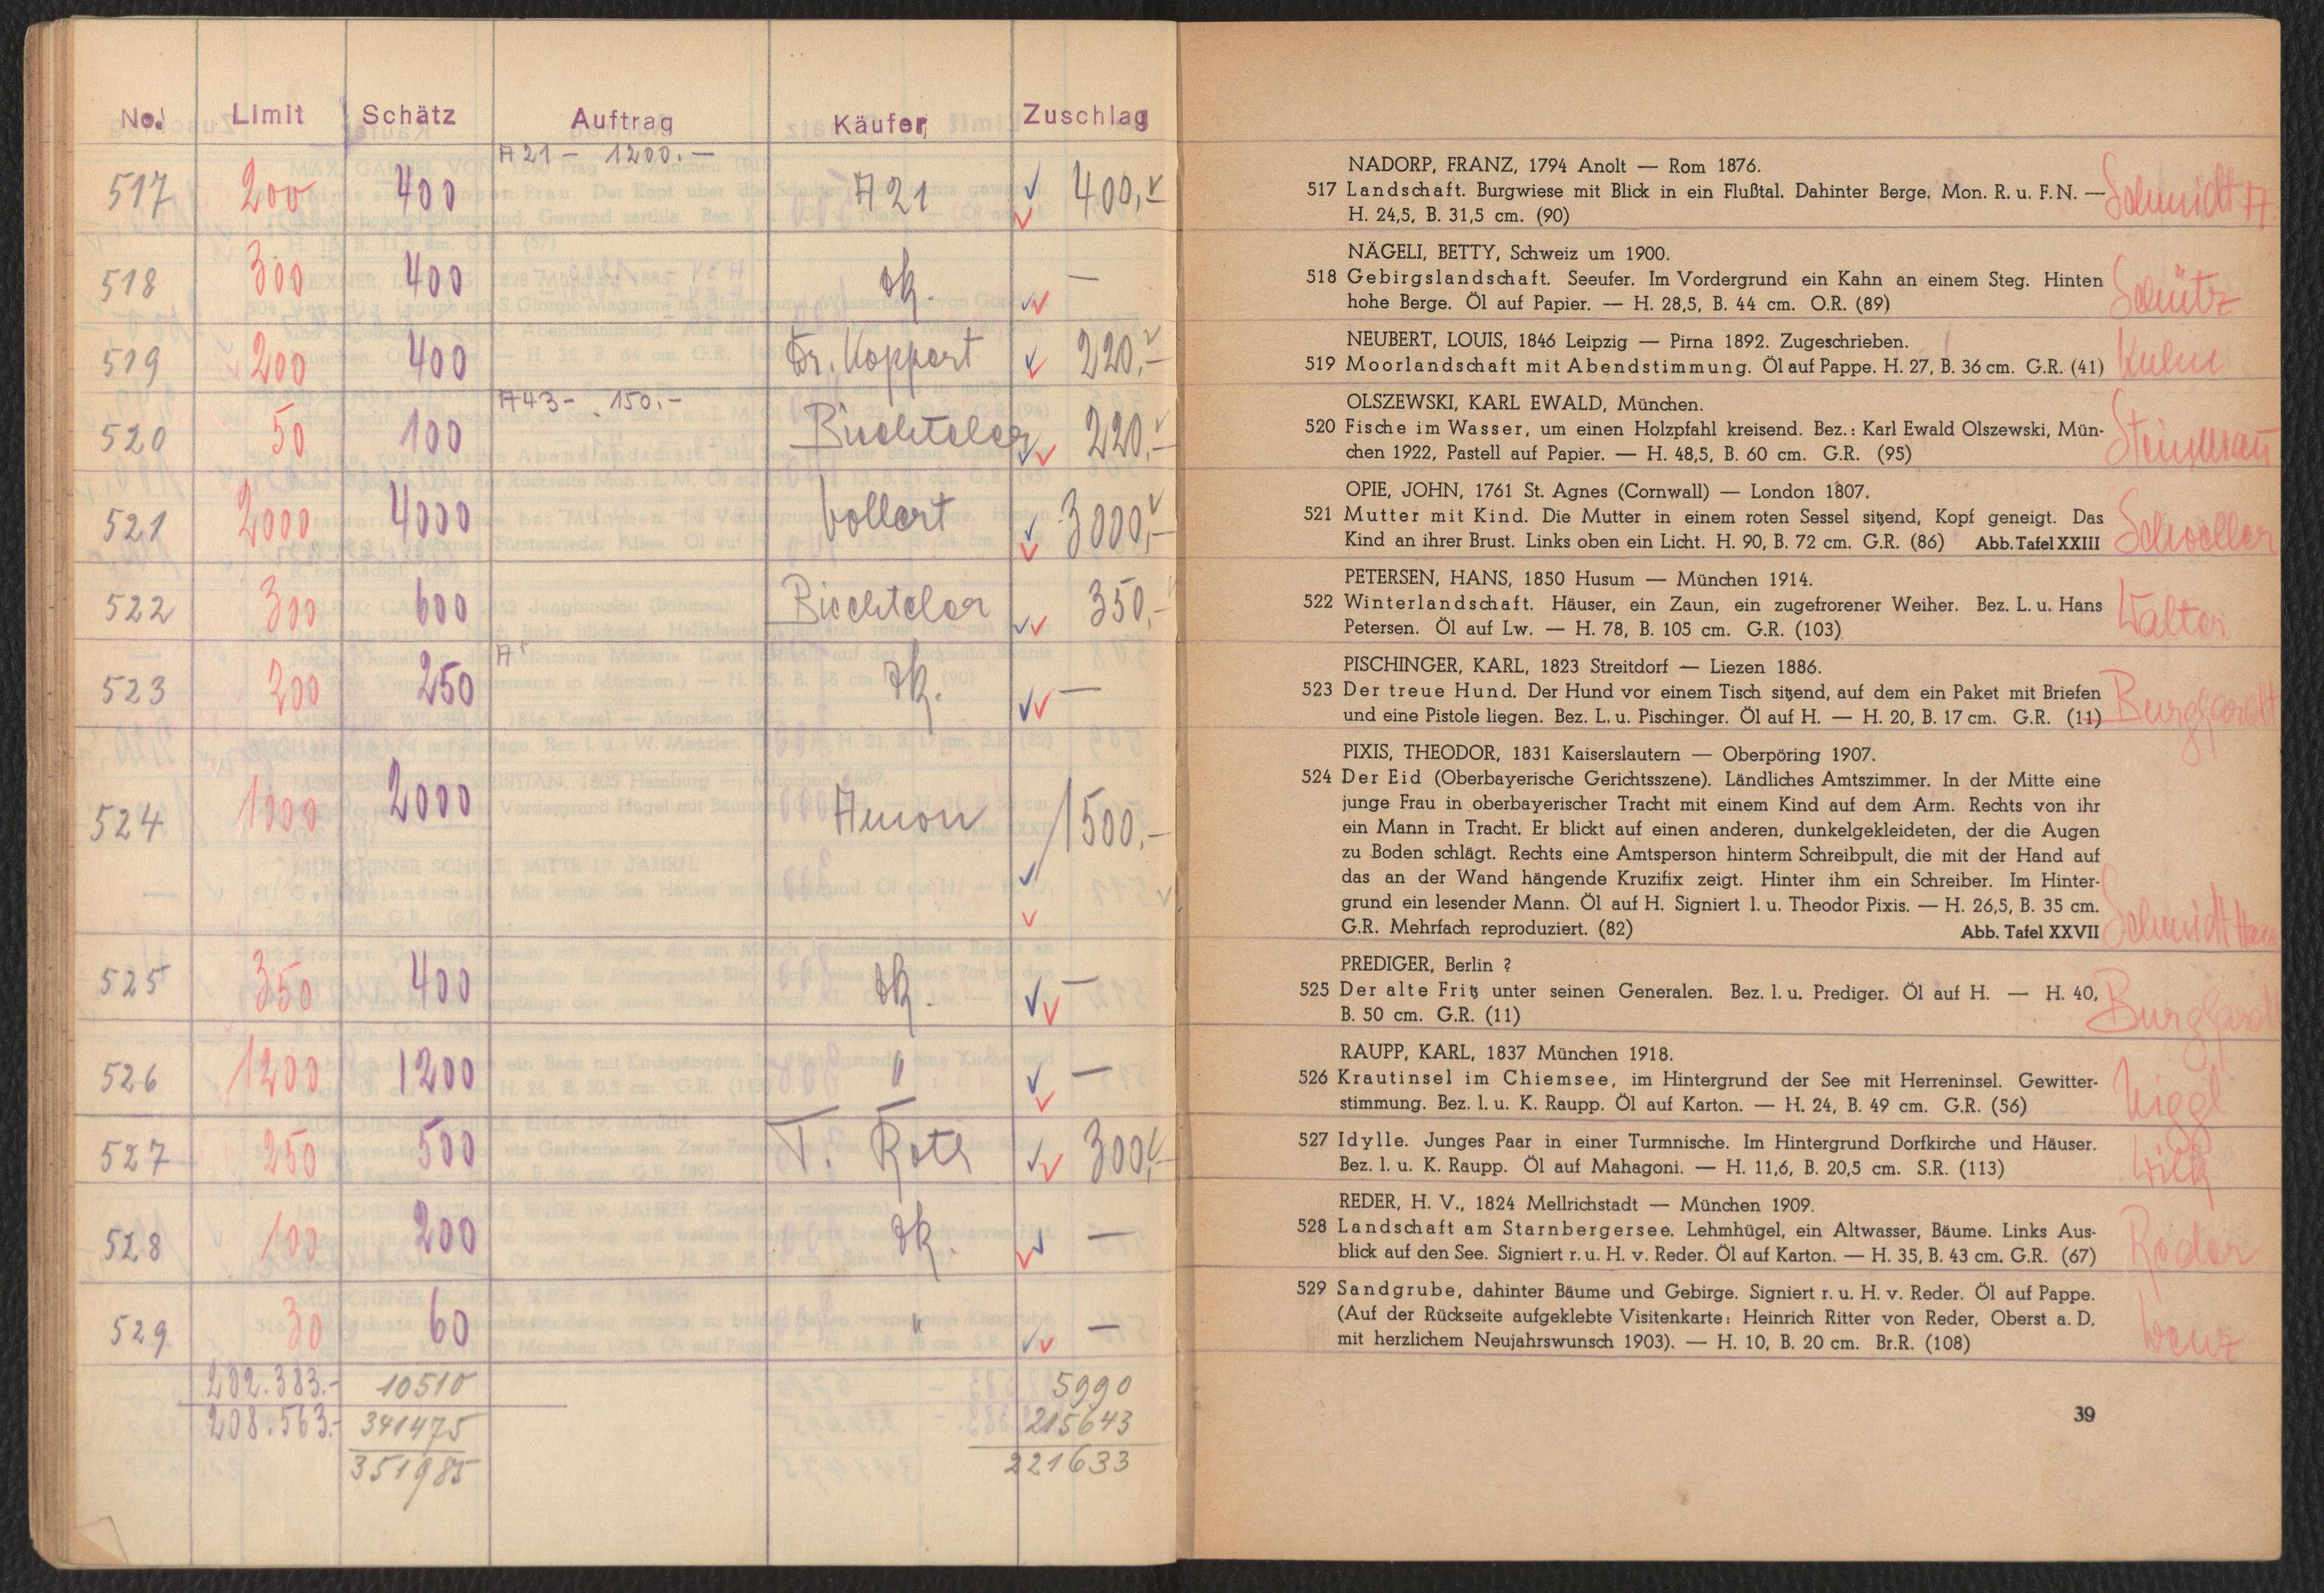 No. Limit Schätz Auftrag Käufer Zuschlag
A21 – 1200.–
517 200 400 A21 400,-
518 300 400 –
519 200 400 Dr. Koppert 220,-
A43 – 150.–
520 50 100 Biechteler 220,-
521 2000 4000 Vollert 3000,-
522 300 600 Biechteler 350,-
A
523 200 250 –
524 1000 2000 Amon 1500,-
525 350 400 –
526 1200 1200 " –
527 250 500 T. Roth 300,-
528 100 200 –
529 30 60 " –
202.383.- 10510 5990
208.563.- 341475 215643
351985 221633
NADORP, FRANZ, 1794 Anolt — Rom 1876.
517 Landschaft. Burgwiese mit Blick in ein Flußtal. Dahinter Berge. Mon. R. u. F. N. — Schmidt A.
H. 24,5, B. 31,5 cm. (90)
NÄGELI, BETTY, Schweiz um 1900.
518 Gebirgslandschaft. Seeufer. Im Vordergrund ein Kahn an einem Steg. Hinten Schütz
hohe Berge. Öl auf Papier. — H. 28,5, B. 44 cm. O.R. (89)
NEUBERT, LOUIS, 1846 Leipzig — Pirna 1892. Zugeschrieben.
519 Moorlandschaft mit Abendstimmung. Öl auf Pappe. H. 27, B. 36 cm. G.R. (41)
OLSZEWSKI, KARL EWALD, München.
520 Fische im Wasser, um einen Holzpfahl kreisend. Bez.: Karl Ewald Olszewski, Mün-
chen 1922, Pastell auf Papier. — H. 48,5, B. 60 cm. G.R. (95)
OPIE, JOHN, 1761 St. Agnes (Cornwall) — London 1807.
521 Mutter mit Kind. Die Mutter in einem roten Sessel sitzend, Kopf geneigt. Das Schoeller
Kind an ihrer Brust. Links oben ein Licht. H. 90, B. 72 cm. G.R. (86) Abb. Tafel XXIII
PETERSEN, HANS, 1850 Husum — München 1914.
522 Winterlandschaft. Häuser, ein Zaun, ein zugefrorener Weiher. Bez. L. u. Hans Walter
Petersen. Öl auf Lw. — H. 78, B. 105 cm. G.R. (103)
PISCHINGER, KARL, 1823 Streitdorf — Liezen 1886.
523 Der treue Hund. Der Hund vor einem Tisch sitzend, auf dem ein Paket mit Briefen
und eine Pistole liegen. Bez. L. u. Pischinger. Öl auf H. — H. 20, B. 17 cm. G.R. (11) Burghardt
PIXIS, THEODOR, 1831 Kaiserslautern — Oberpöring 1907.
524 Der Eid (Oberbayerische Gerichtsszene). Ländliches Amtszimmer. In der Mitte eine
junge Frau in oberbayerischer Tracht mit einem Kind auf dem Arm. Rechts von ihr
ein Mann in Tracht. Er blickt auf einen anderen, dunkelgekleideten, der die Augen
zu Boden schlägt. Rechts eine Amtsperson hinterm Schreibpult, die mit der Hand auf
das an der Wand hängende Kruzifix zeigt. Hinter ihm ein Schreiber. Im Hinter-
grund ein lesender Mann. Öl auf H. Signiert l. u. Theodor Pixis. — H. 26,5, B. 35 cm.
G.R. Mehrfach reproduziert. (82) Abb. Tafel XXVII Schmidt
PREDIGER, Berlin ?
525 Der alte Fritz unter seinen Generalen. Bez. l. u. Prediger. Öl auf H. — H. 40,
B. 50 cm. G.R. (11) Burghardt
RAUPP, KARL, 1837 München 1918.
526 Krautinsel im Chiemsee, im Hintergrund der See mit Herreninsel. Gewitter-
stimmung. Bez. l. u. K. Raupp. Öl auf Karton. — H. 24, B. 49 cm. G.R. (56)
527 Idylle. Junges Paar in einer Turmnische. Im Hintergrund Dorfkirche und Häuser.
Bez. l. u. K. Raupp. Öl auf Mahagoni. — H. 11,6, B. 20,5 cm. S.R. (113)
REDER, H. V., 1824 Mellrichstadt — München 1909.
528 Landschaft am Starnbergersee. Lehmhügel, ein Altwasser, Bäume. Links Aus-
blick auf den See. Signiert r. u. H. v. Reder. Öl auf Karton. — H. 35, B. 43 cm. G.R. (67)
529 Sandgrube, dahinter Bäume und Gebirge. Signiert r. u. H. v. Reder. Öl auf Pappe.
(Auf der Rückseite aufgeklebte Visitenkarte: Heinrich Ritter von Reder, Oberst a. D.
mit herzlichem Neujahrswunsch 1903). — H. 10, B. 20 cm. Br.R. (108)
39